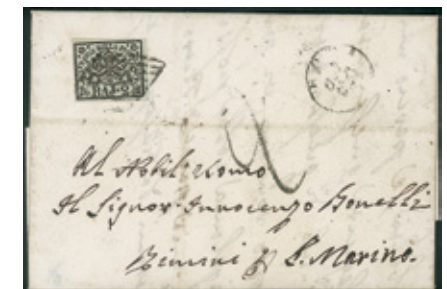 BAJ 2
2
Al Nobil Uomo
Il Signor Innocenzo Bonelli
Rimini p S. Marino.